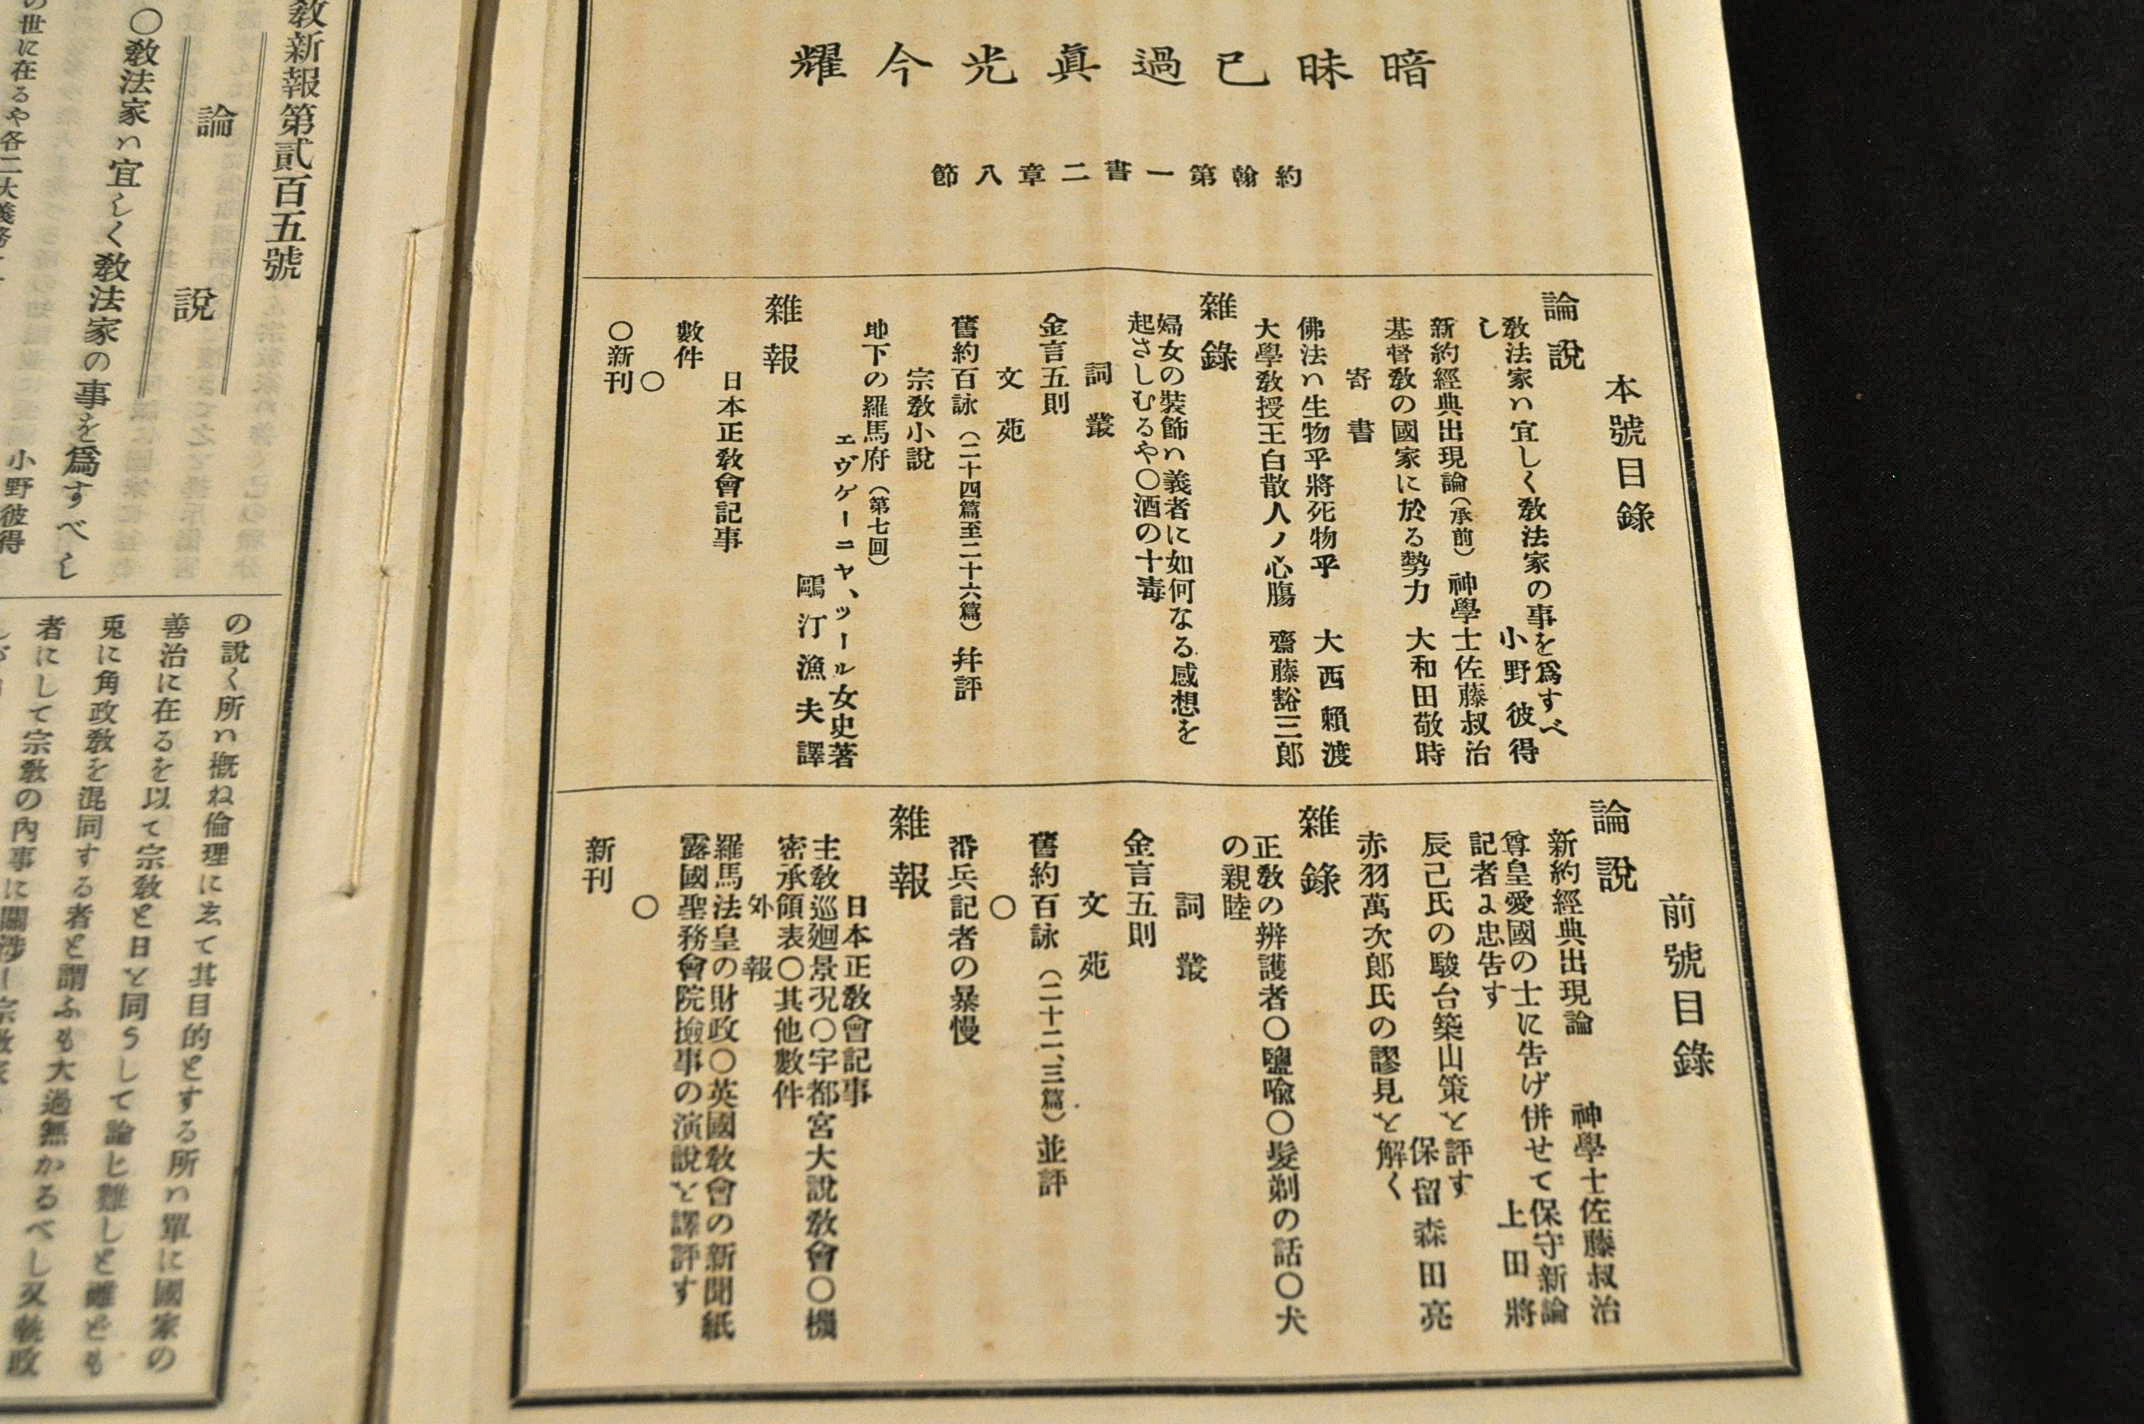 暗昧已過眞光今耀
約翰第一書二章八節
本號目錄
論說
敎法家ハ宜しく敎法家の事を爲すべ
し
小野彼得
新約經典出現論（承前）神學士佐藤叔治
基督敎の國家に於る勢力 大和田敬時
寄書
佛法ハ生物乎將死物乎 大西賴渡
大學敎授王白散人ノ心膓 齋藤豁三郎
雜錄
婦女の裝飾ハ義者に如何なる感想を
起さしむるや〇酒の十毒
詞叢
金言五則
文苑
舊約百詠（二十四篇至二十六篇）幷評
宗敎小說
地下の羅馬府（第七回）
エヴゲーニヤ、ツール女史著
鷗汀漁夫譯
雜報
日本正敎會記事
數件
〇
〇新刊
前號目錄
論說
新約經典出現論 神學士佐藤叔治
尊皇愛國の士に告げ併せて保守新論
記者に忠告す 上田將
辰己氏の駿台築山策を評す
保留森田亮
赤羽萬次郎氏の謬見を解く
雜錄
正敎の辨護者〇鹽喩〇髮剃の話〇犬
の親睦
詞叢
金言五則
文苑
舊約百詠（二十二、三篇）並評
〇
番兵記者の暴慢
雜報
日本正敎會記事
主敎巡廻景况〇宇都宮大說敎會〇機
密承領表〇其他數件
外報
羅馬法皇の財政〇英國敎會の新聞紙
露國聖務會院撿事の演說を譯評す
〇
新刊
敎新報第貳百五號
論說
〇敎法家ハ宜しく敎法家の事を爲すべし
小野彼得
の世に在るや各二大義務
の說く所ハ概ね倫理にゑて其目的とする所ハ單に國家の
善治に在るを以て宗敎と日を同うして論じ難しと雖ども
兎に角政敎を混同する者と謂ふも大過無かるべし又執政
者にして宗敎の內事に關渉し宗敎家